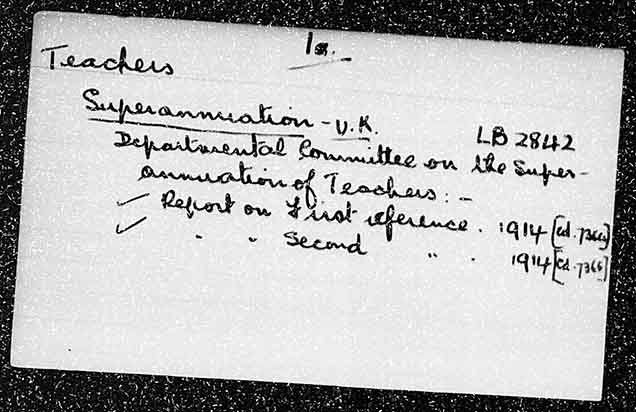 1s.
Teachers
Superannuation - U.K.
LB 2842
Departmental Committee on the Super-
annuation of Teachers: -
✓ Report on First reference. 1914 [Cd. 7364]
✓ " " Second " . 1914 [Cd. 7365]